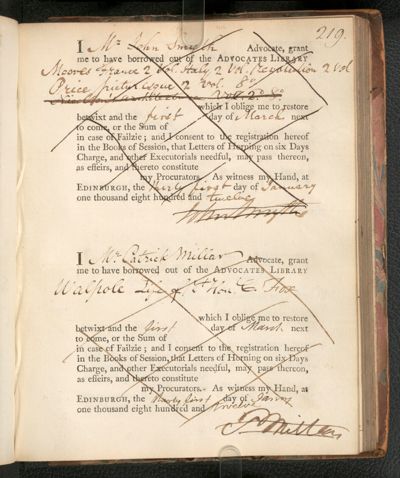 219.
I Mr John Smyth Advocate, grant
me to have borrowed out of the ADVOCATES LIBRARY
Moores France 2 Vol. Italy 2 Vol. Revolution 2 Vol
Price 2 Vol. 8o
which I oblige me to restore
betwixt and the first day of March next
to come, or the Sum of
in case of Failzie; and I consent to the registration hereof
in the Books of Session, that Letters of Horning on six Days
Charge, and other Executorials needful, may pass thereon,
as effeirs, and thereto constitute
my Procurators. As witness my Hand, at
EDINBURGH, the thirty first day of January
one thousand eight hundred and twelve
John Smyth
I Mr Patrick Millar Advocate, grant
me to have borrowed out of the ADVOCATES LIBRARY
Walpole Fox
which I oblige me to restore
betwixt and the first day of March next
to come, or the Sum of
in case of Failzie; and I consent to the registration hereof
in the Books of Session, that Letters of Horning on six Days
Charge, and other Executorials needful, may pass thereon,
as effeirs, and thereto constitute
my Procurators. As witness my Hand, at
EDINBURGH, the first day of
one thousand eight hundred and twelve
P. Millar